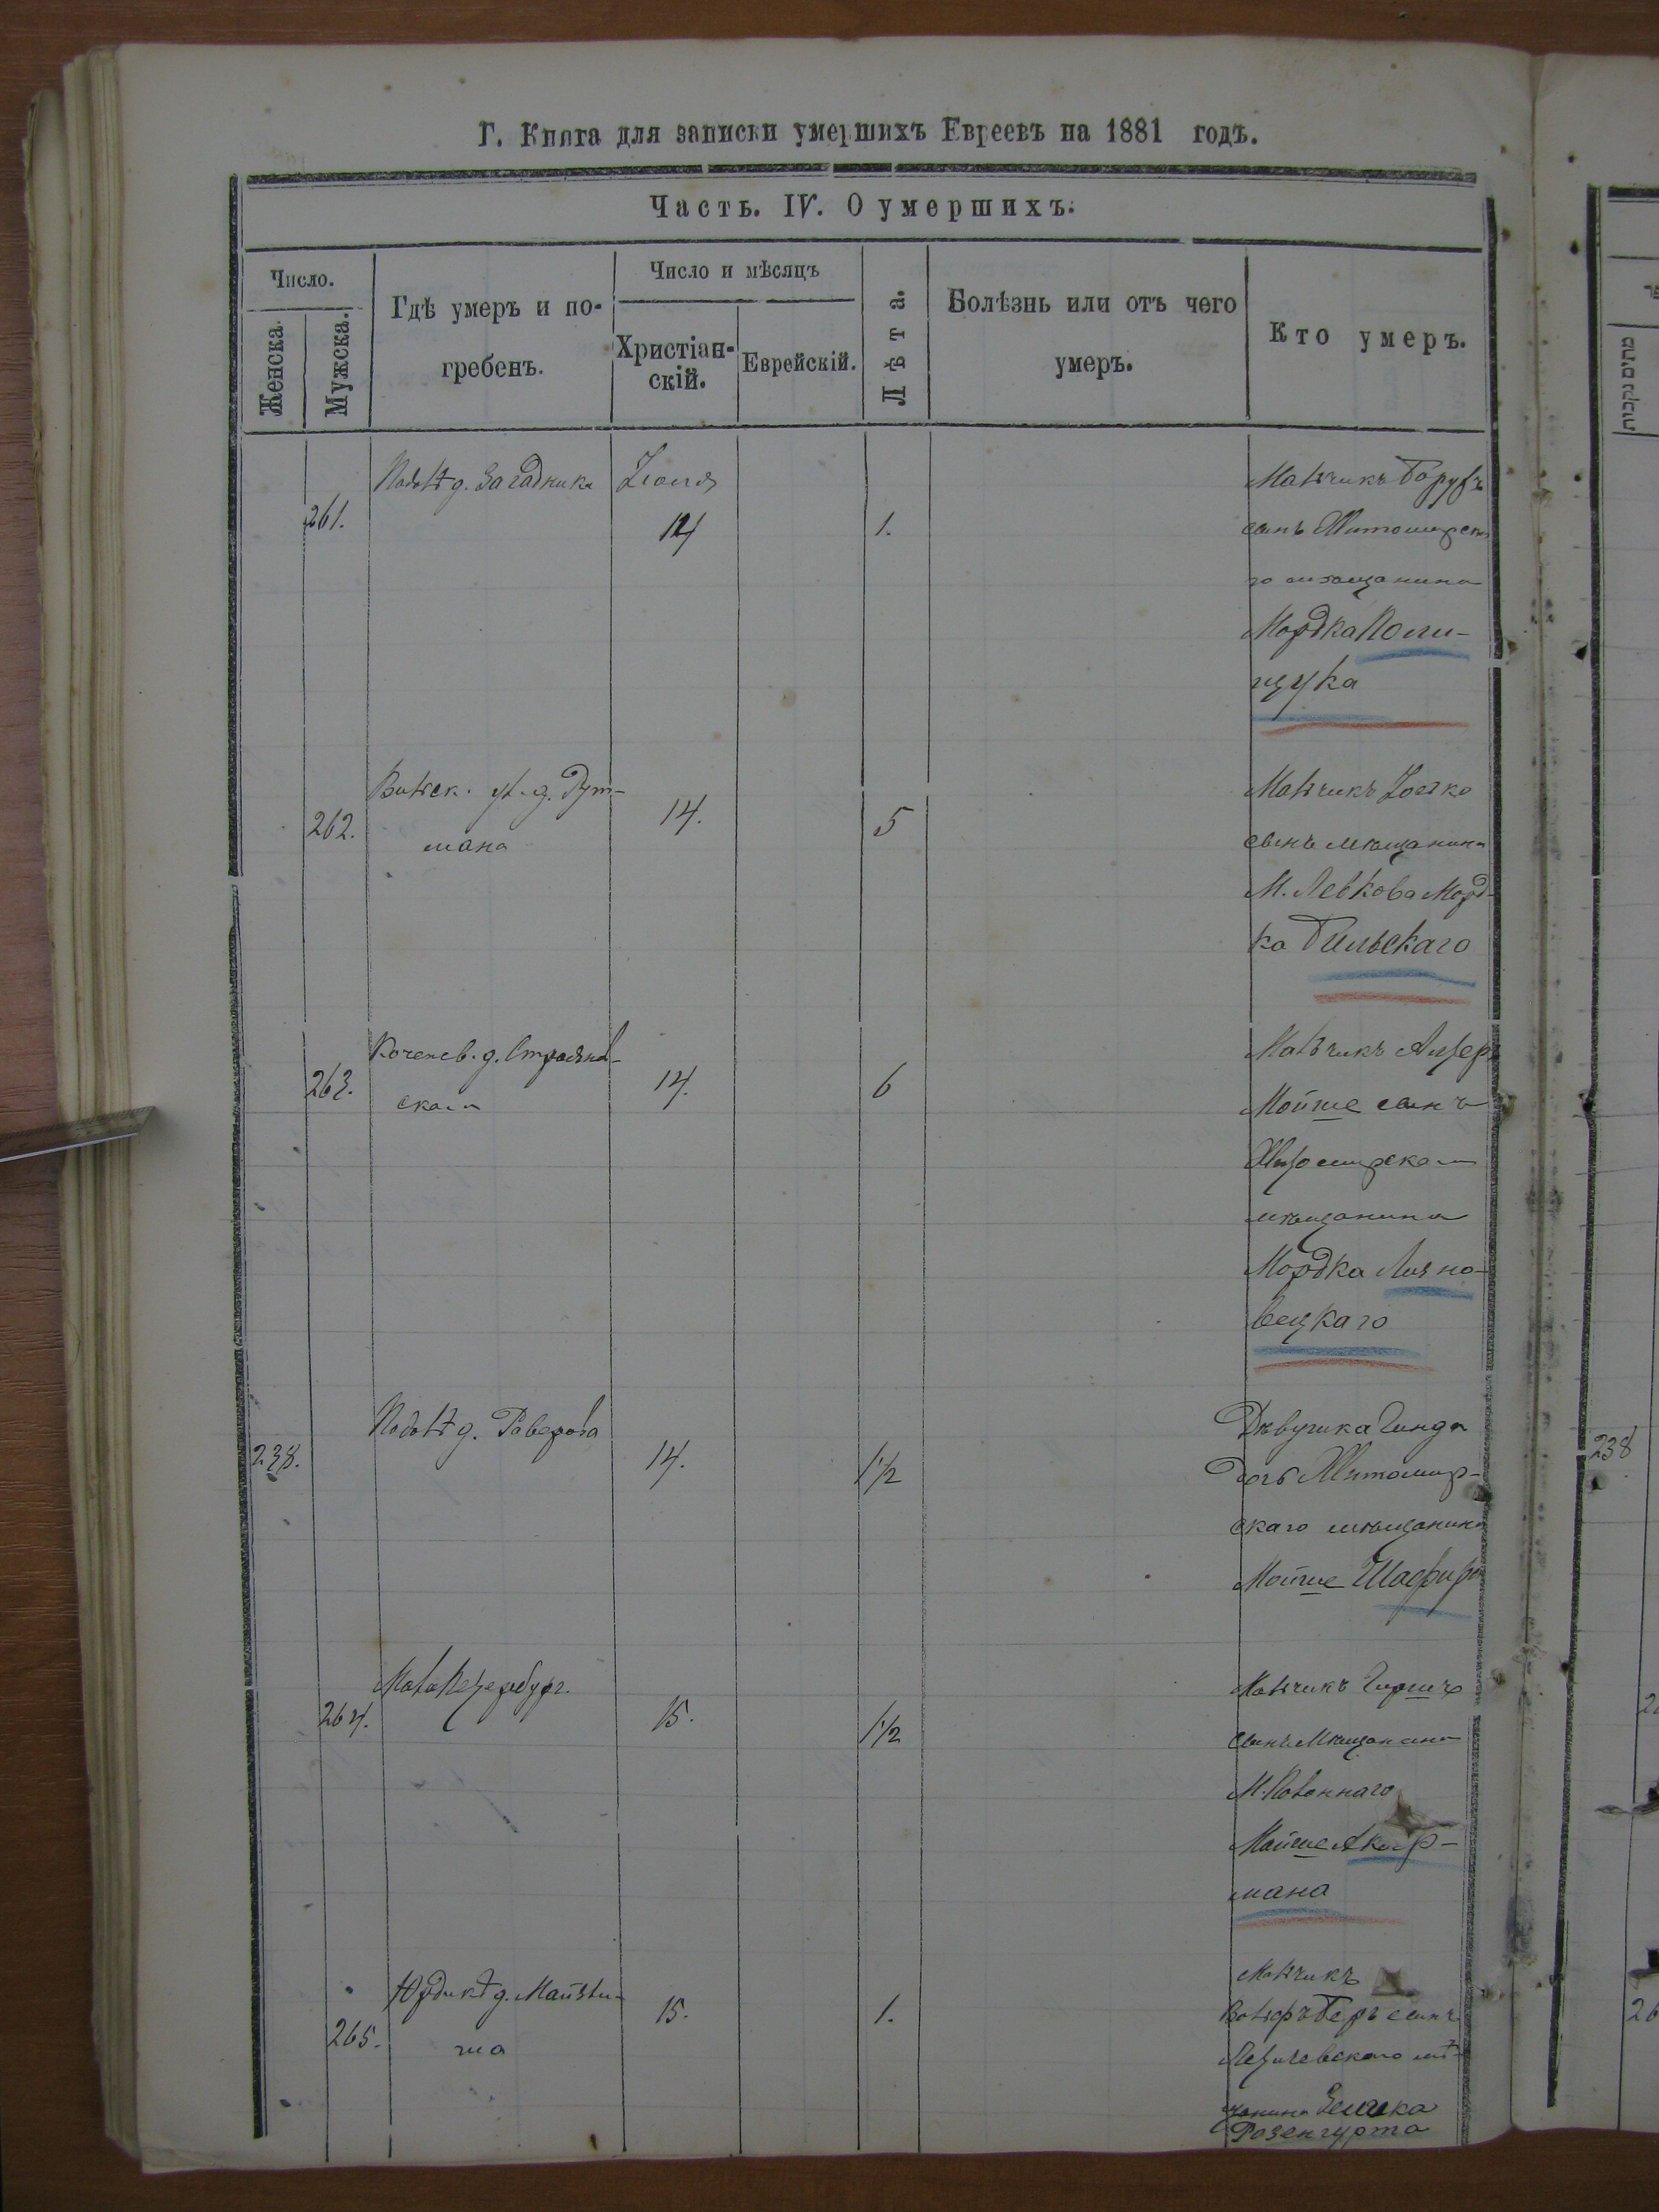 Г. Книга для записки умершихъ Евреевъ на 1881 годъ.
Часть. IV. О умершихъ.
Число.
Женска.
Мужска.
Гдѣ умеръ и по-
гребенъ.
Число и мѣсяцъ
Христіан-
скій.
Еврейскій.
Лѣта.
Болѣзнь или отъ чего
умеръ.
Кто умеръ.
261.
Подол. д. Загадника
Іюня
14
1.
Мальчикъ Борухъ
сынъ Житомирска
го мѣщанина
Мордка Поли-
щука
262.
Вильск. ул. д. Рут-
мана
14.
5
Мальчикъ
сынъ мѣщанина
М. Левкова Морд-
ка Бильскаго
263.
д.
скаго
14.
6
Мальчикъ Алтеръ
Мойше сынъ
Житомирскаго
мѣщанина
Мордка Ляхо-
вецкаго
238.
Подол. д.
14.
1 1/2
Дѣвушка Гинда
дочь Житомир-
скаго мѣщанина
Мойше Шафира
264.
Мал. Петербург.
15.
1 1/2
Мальчикъ Гершъ
сынъ мѣщанина
М. Полоннаго
Мойше Акер-
мана
265.
д.
15.
1.
Мальчикъ
Вольфъ Беръ сынъ
Летичевскаго мѣ-
щанина
Розенгурта
238